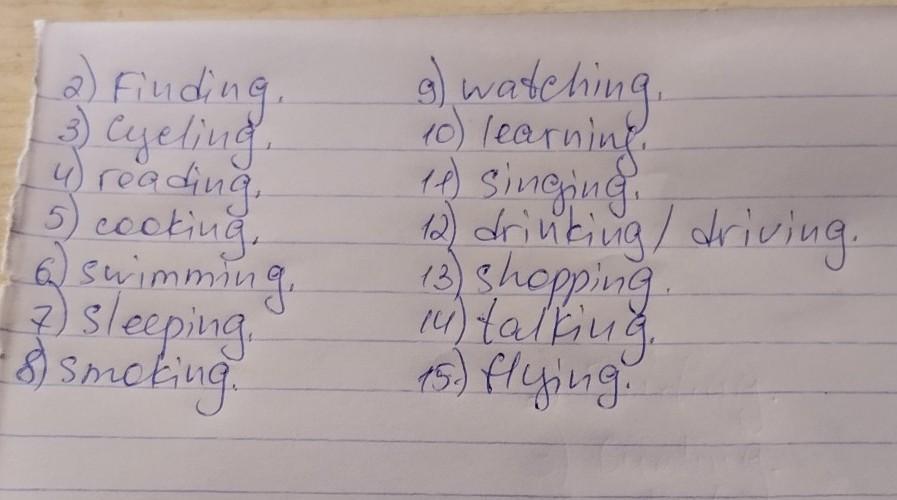 2) Finding.
3) Cycling.
4) reading.
5) cooking.
6) swimming.
7) Sleeping.
8) smoking.
9) watching.
10) learning.
11) singing.
12) drinking / driving.
13) shopping.
14) talking.
15.) flying.